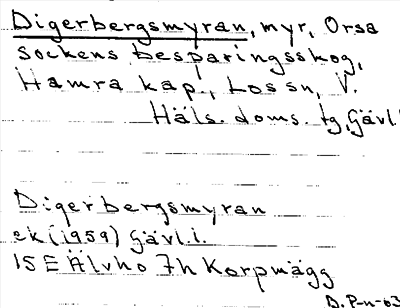 Digerbergsmyran, myr, Orsa
sockens besparingsskog,
Hamra kap., Los sn, V.
Häls. doms. tg, Gävl.
Digerbergsmyran
ek (1959) Gävl. l.
15E Älvho 7h Korpmägg
B. P-n -63